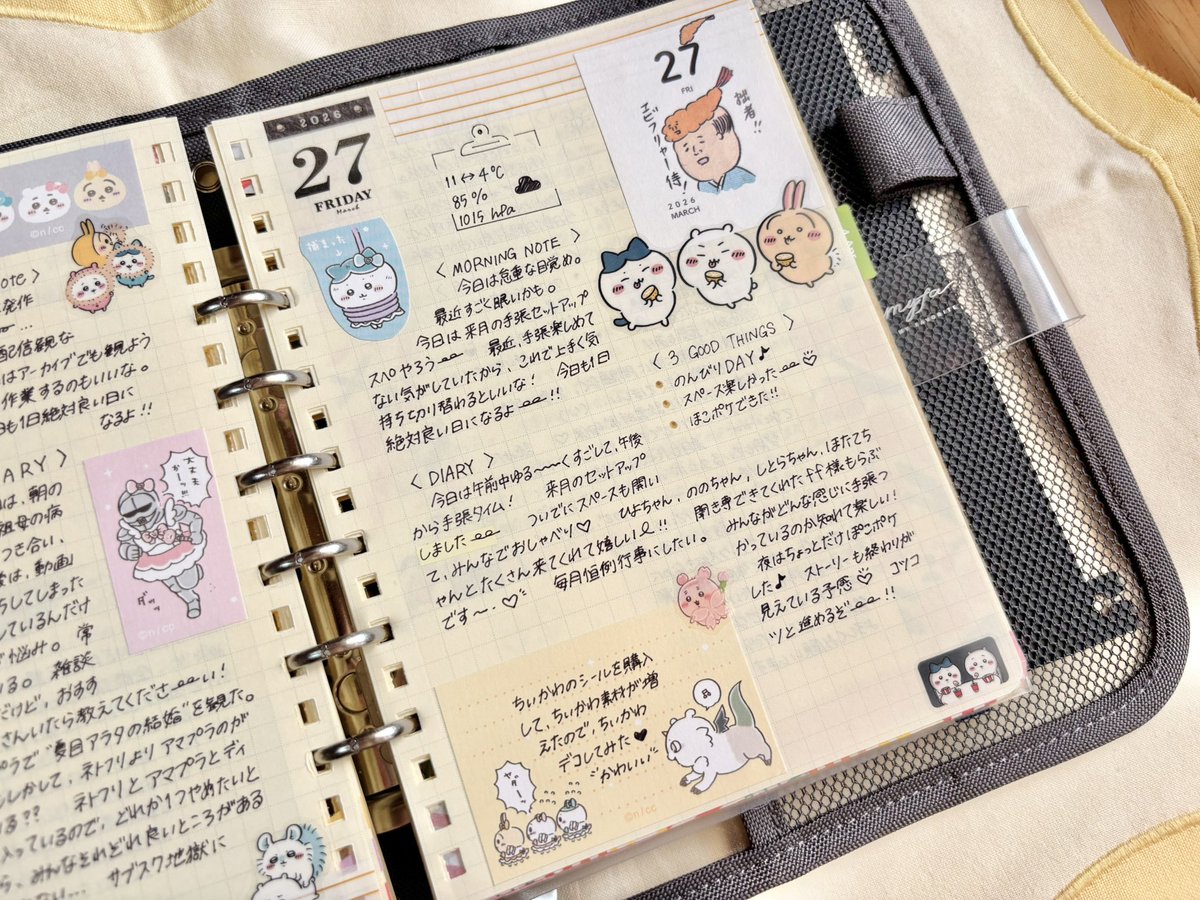 ©n/cc
発作
配信観な
はアーカイブでも観よう
作業するのもいいな。
も1日絶対良い日に
なるよ!!
ARY 〉
は、朝の
祖母の病
つき合い、
は、動画
ちしてしまった
しているんだけ
で悩み。常
いる。雑談
だけど、おすす
さんいたら教えてくださーい!
プラで"夏目アラタの結婚"を観た。
しかして、ネトフリよりアマプラのが
る?? ネトフリとアマプラとディ
入っているので、どれか1つやめたいと
ら、みんなそれぞれ良いところがある
ない… サブスク地獄に
大丈夫かーッ!!
ダッッ
©n/cc
2026
27
FRIDAY
March
11↔4℃
85%
1015 hPa
27
FRI
拙者!!
エビフリャー侍!
2026
MARCH
捕まった
〈 MORNING NOTE 〉
今日は急車な目覚め。
最近すごく眠いかも。
今日は来月の手張セットアップ
スペやろう〜 最近、手張楽しめて
ない気がしていたから、これで上手く気
持ち切り替わるといいな! 今日も1日
絶対良い日になるよ〜!!
〈 3 GOOD THINGS 〉
のんびりDAY♪
スペース楽しかった〜
ぽこポケできた!!
〈 DIARY 〉
今日は午前中ゆる〜〜くすごして、午後
から手張タイム! 来月のセットアップ
しました〜 ついでにスペースも開い
て、みんなでおしゃべり♡ ひよちゃん、ののちゃん、しとらちゃん、ほたてち
ゃんとたくさん来てくれて嬉しい!! 聞き専できてくれたff様もらぶ
です〜.♡ 毎月恒例行事にしたい。 みんながどんな感じに手張つ
かっているのか知れて楽しい!
夜はちょっとだけぽこポケ
した♪ ストーリーも終わりが
見えている予感♡ コツコ
ツと進めるぞ〜!!
ちいかわのシールを購入
して、ちいかわ素材が増
えたので、ちいかわ
デコしてみた♥
かわいい
ヤダー
©n/cc